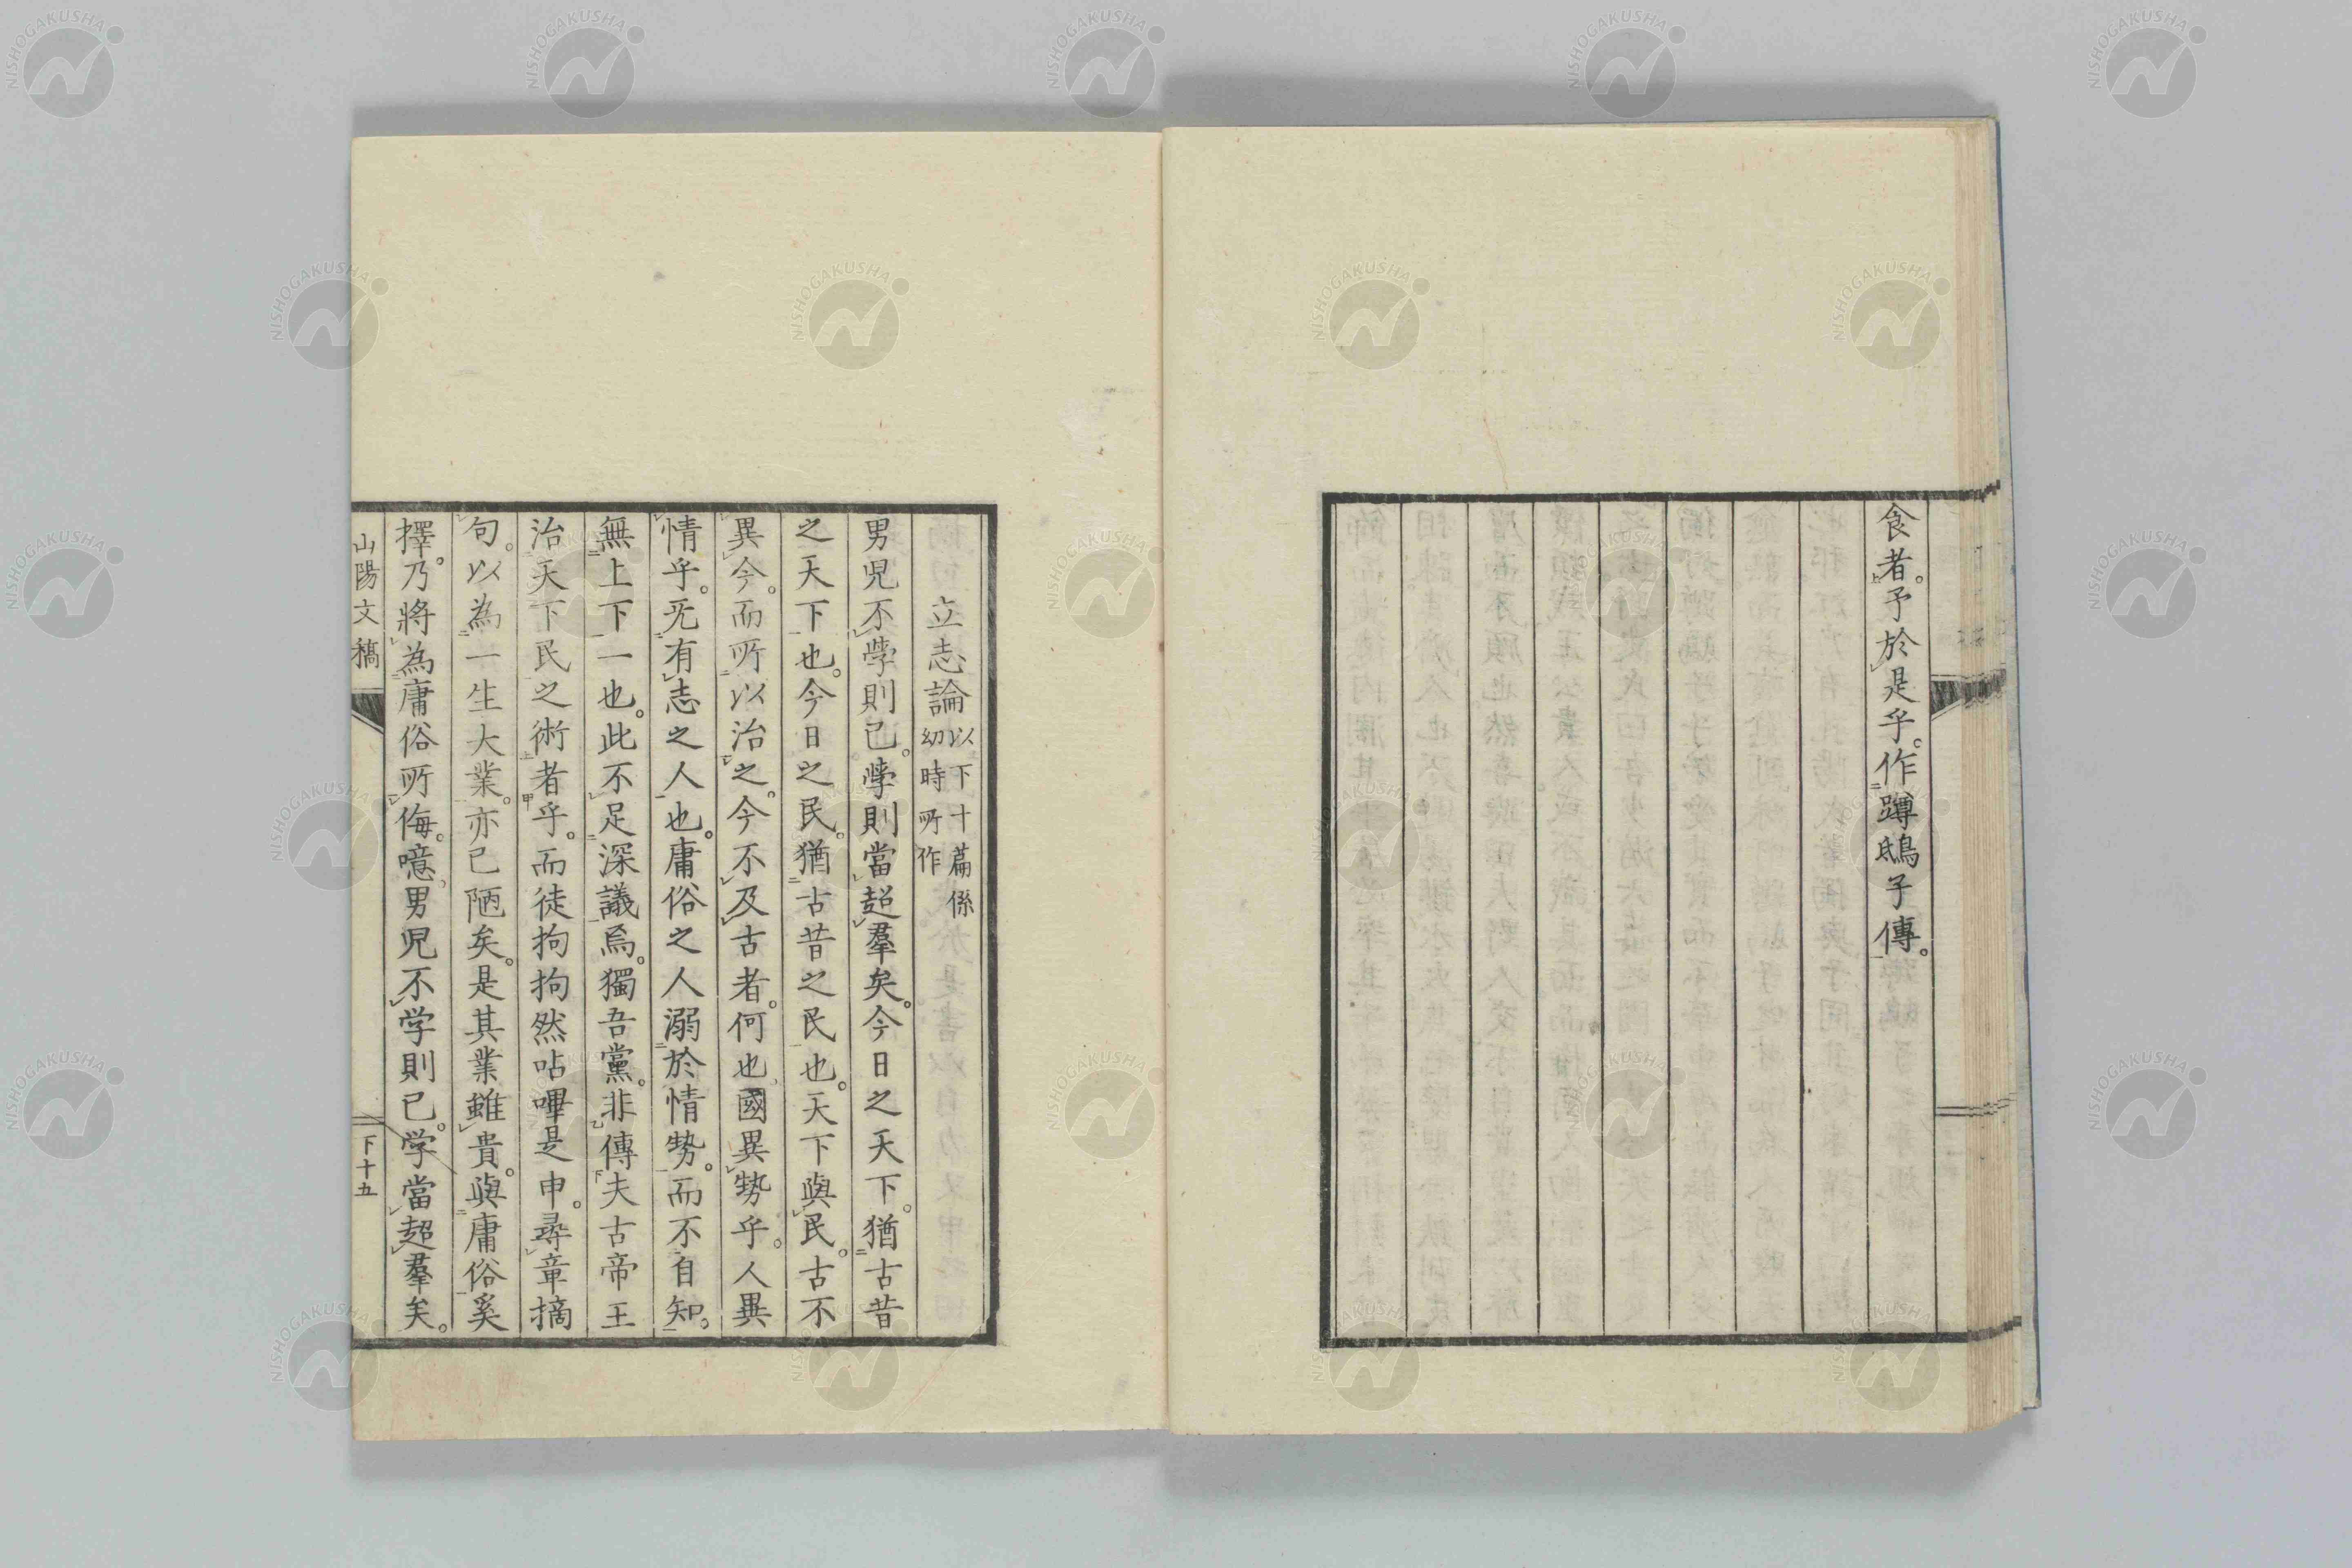 食者。予於是乎。作蹲鴟子傳。
立志論 以下十篇係幼時所作
男児不學則已。學則當超羣矣。今日之天下。猶古昔
之天下也。今日之民。猶古昔之民也。天下與民。古不
異今。而所以治之。今不及古者。何也。國異勢乎。人異
情乎。无有志之人也。庸俗之人溺於情勢。而不自知。
無上下一也。此不足深議焉。獨吾黨。非傳夫古帝王
治天下民之術者乎。而徒拘拘然呫嗶是申。尋章摘
句。以為一生大業。亦已陋矣。是其業雖貴。與庸俗奚
擇。乃將為庸俗所侮。噫。男児不学則已。学當超羣矣。
山陽文稿
下十五
NISHOGAKUSHA